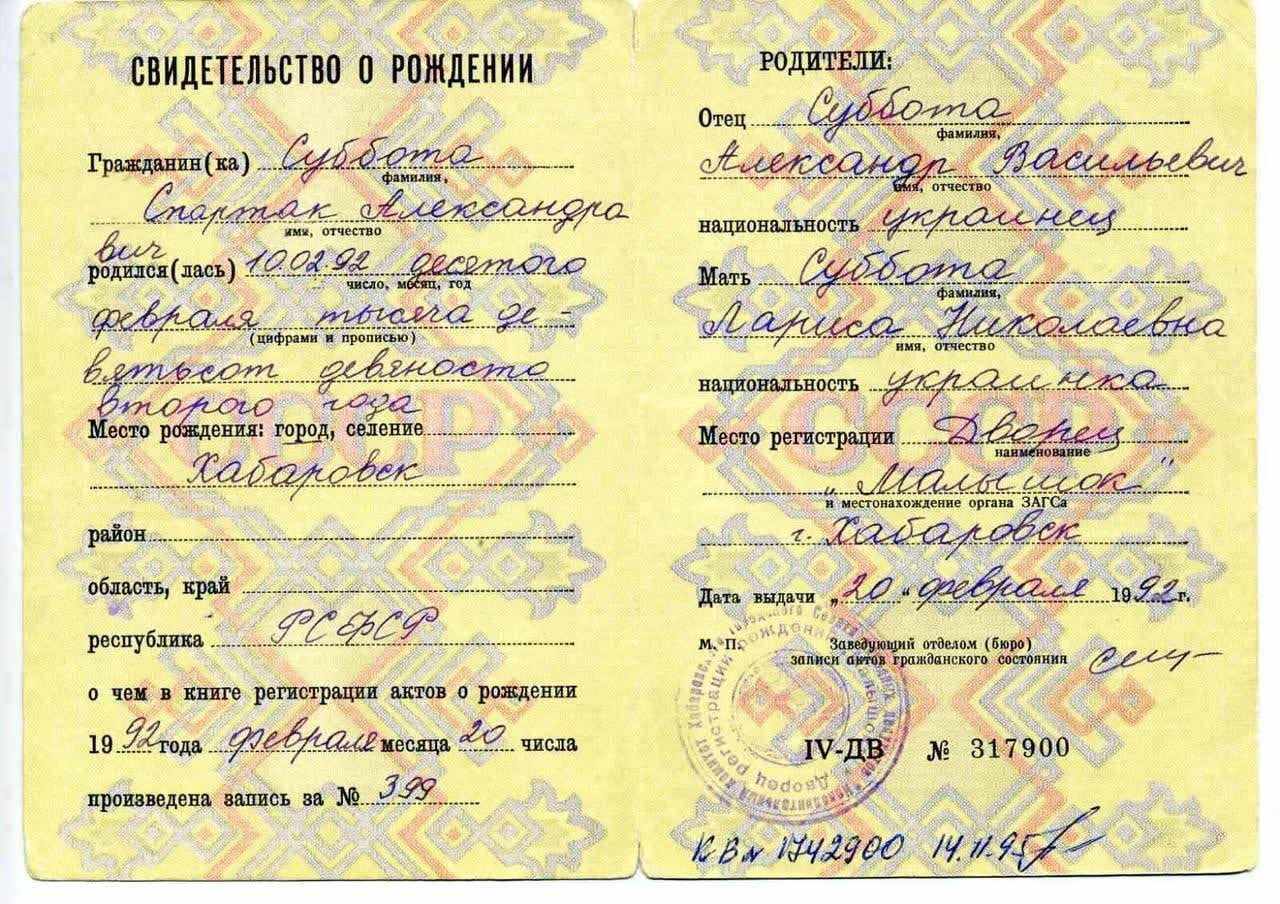 СВИДЕТЕЛЬСТВО О РОЖДЕНИИ
Гражданин(ка) Суббота
фамилия,
Спартак Александро
имя, отчество
вич
родился(лась) 10.02.92 десятого
число, месяц, год
февраля тысяча де-
(цифрами и прописью)
вятьсот девяносто
второго года
Место рождения: город, селение
Хабаровск
район
область, край
республика РСФСР
о чем в книге регистрации актов о рождении
1992 года февраля месяца 20 числа
произведена запись за № 399
РОДИТЕЛИ:
Отец Суббота
фамилия,
Александр Васильевич
имя, отчество
национальность украинец
Мать Суббота
фамилия,
Лариса Николаевна
имя, отчество
национальность украинка
Место регистрации Дворец
наименование
„Малышок"
и местонахождение органа ЗАГСа
г. Хабаровск
Дата выдачи „20" февраля 1992 г.
М. П. Заведующий отделом (бюро)
записи актов гражданского состояния
IV-ДВ № 317900
КВ № 1742900 14.11.95
СССР
СССР